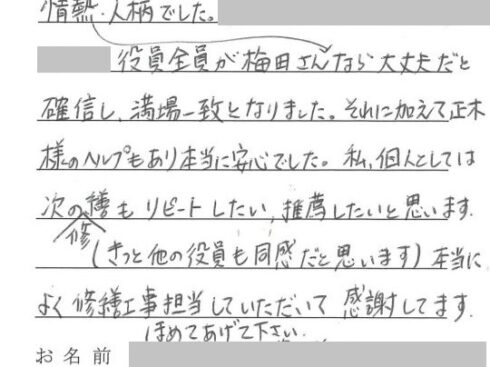 情熱・人柄でした。
役員全員が梅田さんなら大丈夫だと
確信し、満場一致となりました。それに加えて正木
様のヘルプもあり本当に安心でした。私、個人としては
次の修繕もリピートしたい、推薦したいと思います。
(きっと他の役員も同感だと思います)本当に
よく修繕工事担当していただいて感謝してます。
ほめてあげて下さい。
お名前